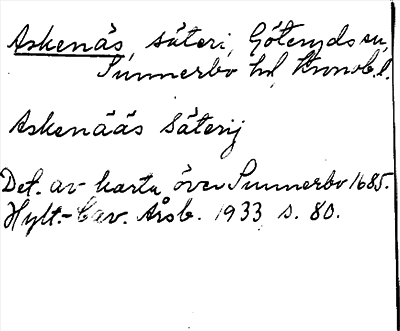 Askenäs, säteri, Göteryds sn,
Sunnerbo hd, Kronob. l.
Askenääs Säterij
Det. av karta över Sunnerbo 1685.
Hylt.-Cav. Årsb. 1933, s. 80.